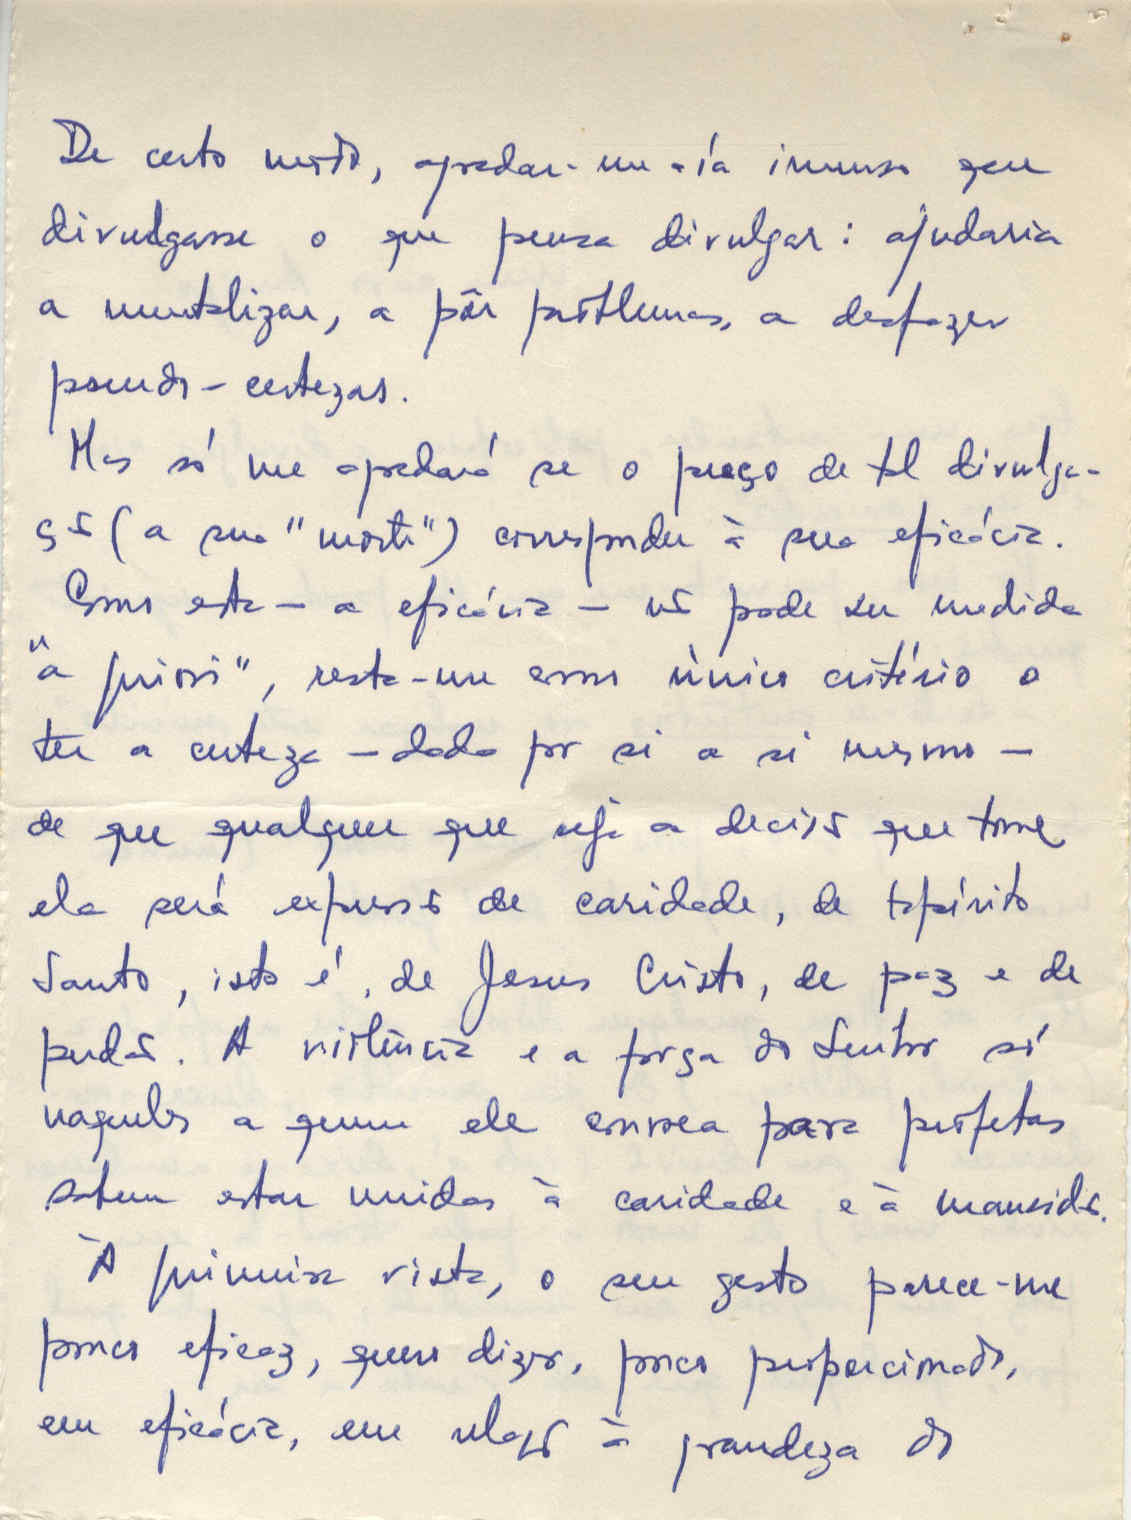 De certo modo, agradar-me-ía imenso que
divulgasse o que pensa divulgar: ajudaria
a mentalizar, a pôr problemas, a desfazer
pseudo-certezas.
Mas só me agradará se o preço de tal divulga-
ção (a sua "morte") corresponder à sua eficácia.
Como esta — a eficácia — não pode ser medida
"a priori", resta-me como único critério o
ter a certeza — dada por si a si mesmo —
de que qualquer que seja a decisão que tome
ela será expressão de caridade, de Espírito
Santo, isto é, de Jesus Cristo, de paz e de
perdão. A violência e a força do Senhor só
naqueles a quem ele convoca para profetas
sabem estar unidas à caridade e à mansidão.
À primeira vista, o seu gesto parece-me
pouco eficaz, quero dizer, pouco proporcionado,
em eficácia, em relação à grandeza do